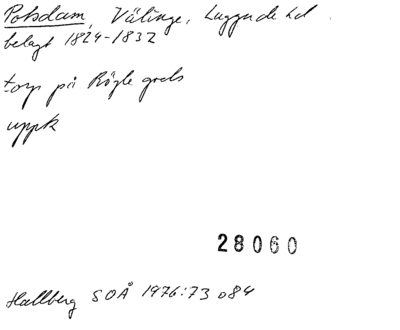 Potsdam, Välinge, Luggude hd.
belagt 1824-1832
torp på Rögle gods
uppk
28060
Hallberg SOÅ 1976:73 o 84